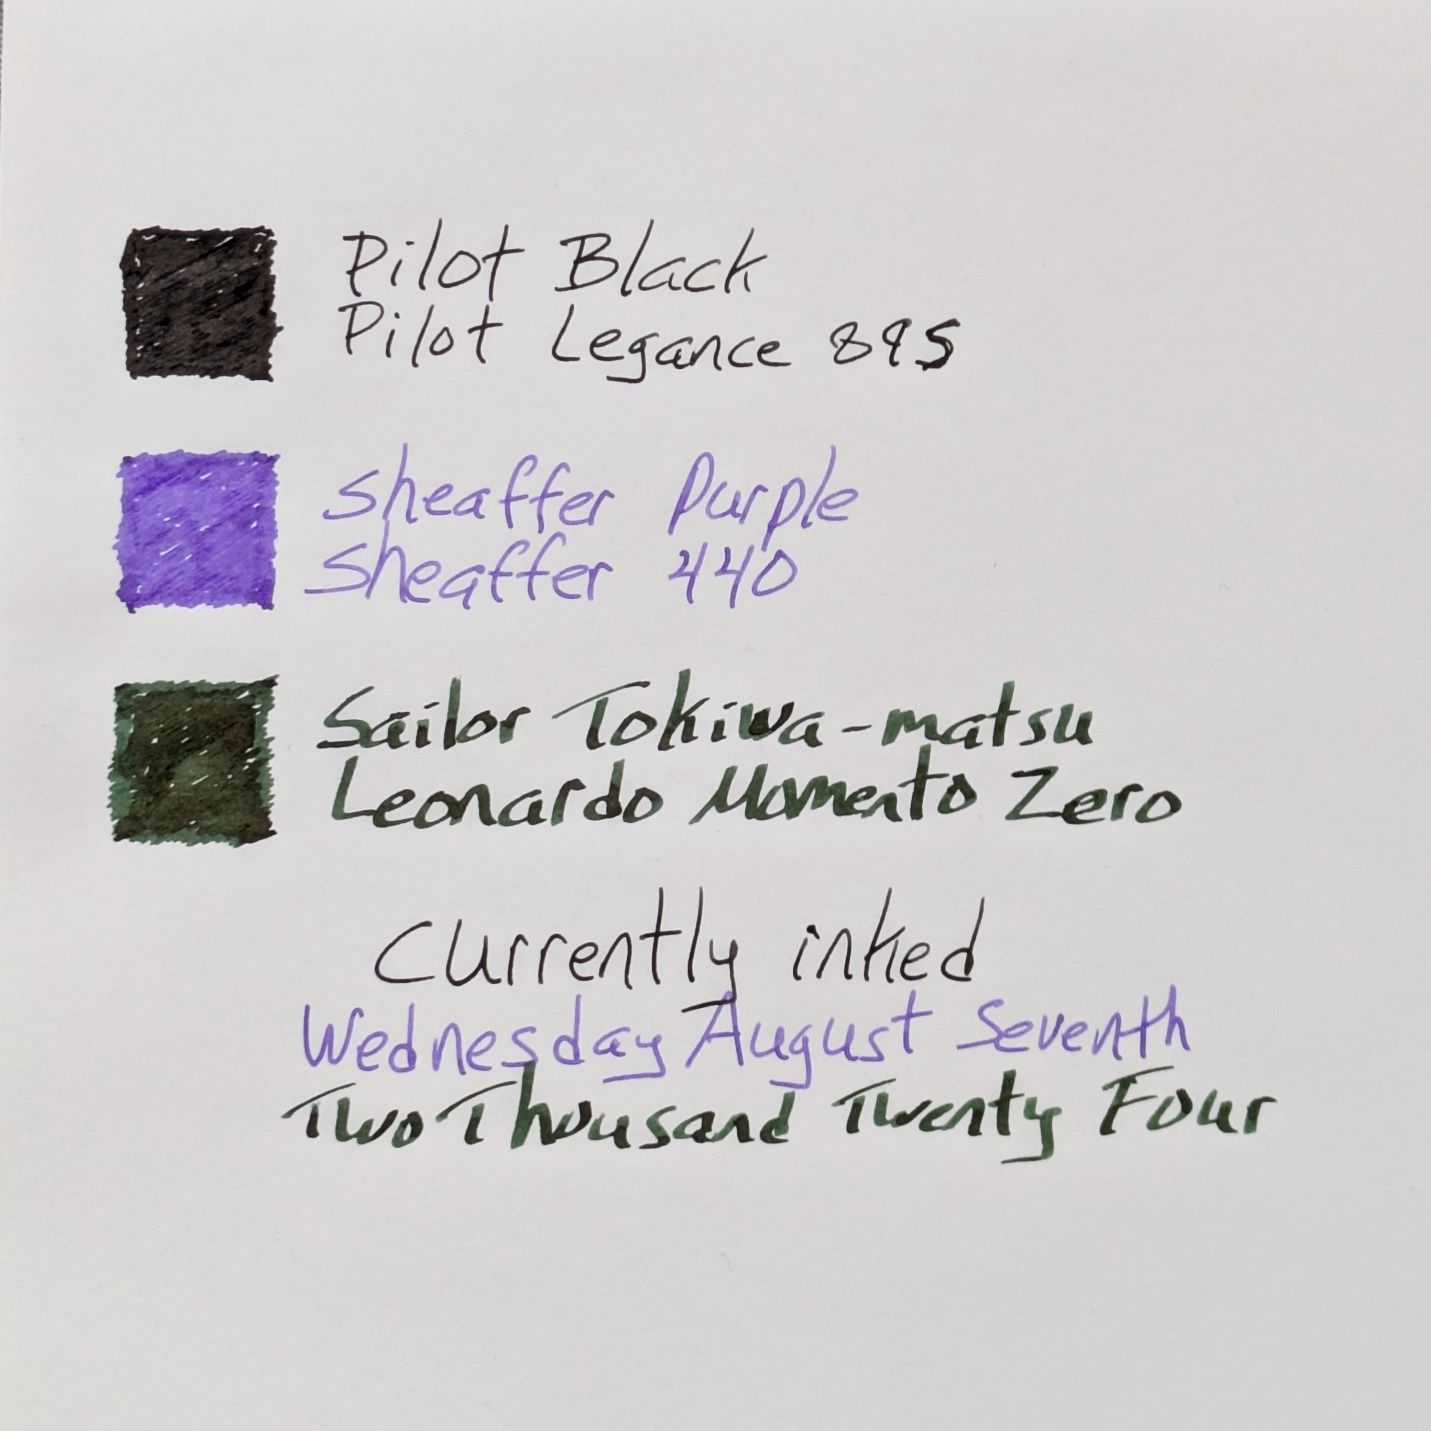 Pilot Black
Pilot Legance 89S
Sheaffer Purple
Sheaffer 440
Sailor Tokiwa-matsu
Leonardo Momento Zero
Currently inked
Wednesday August Seventh
Two Thousand Twenty Four